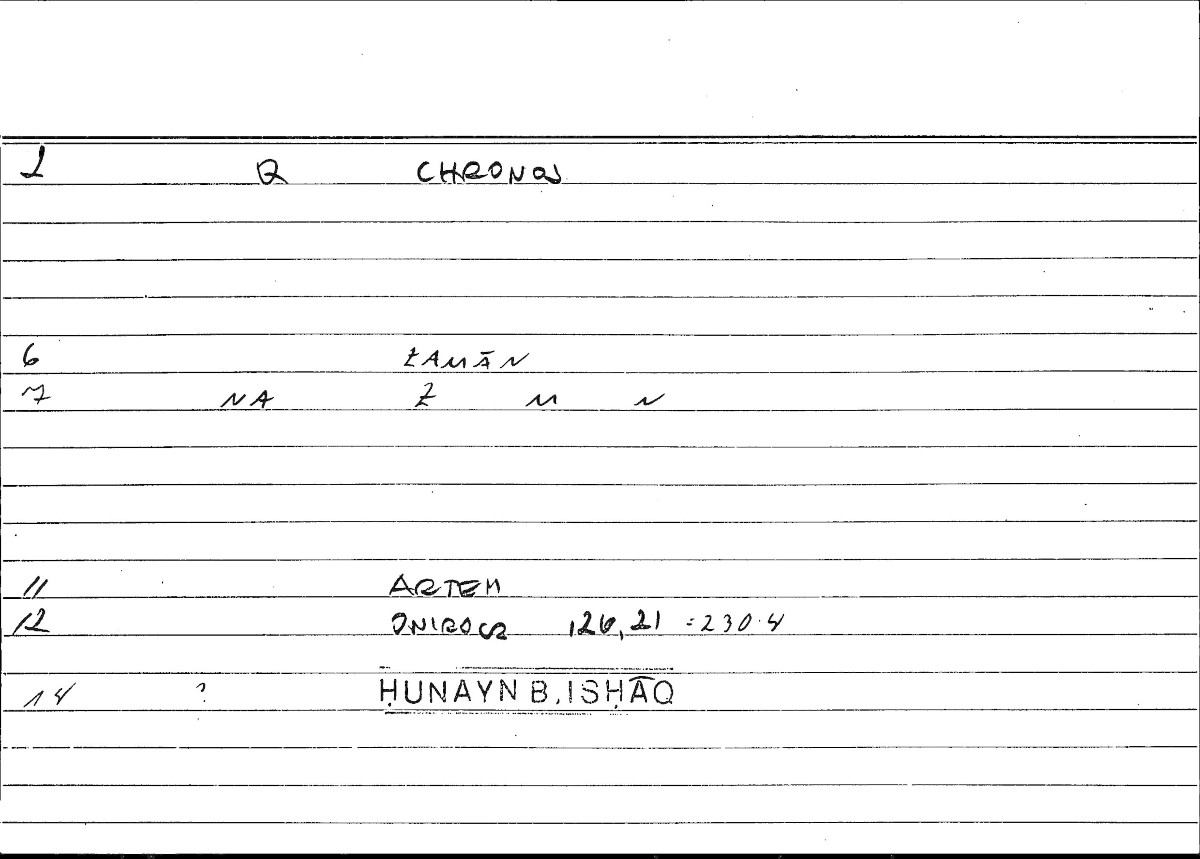 1 R CHRONOS
6 ZAMĀN
7 NA Z M N
11 ARTEM
12 ONIROCR 126,21 =230.4
14 ? ḤUNAYN B. ISḤĀQ